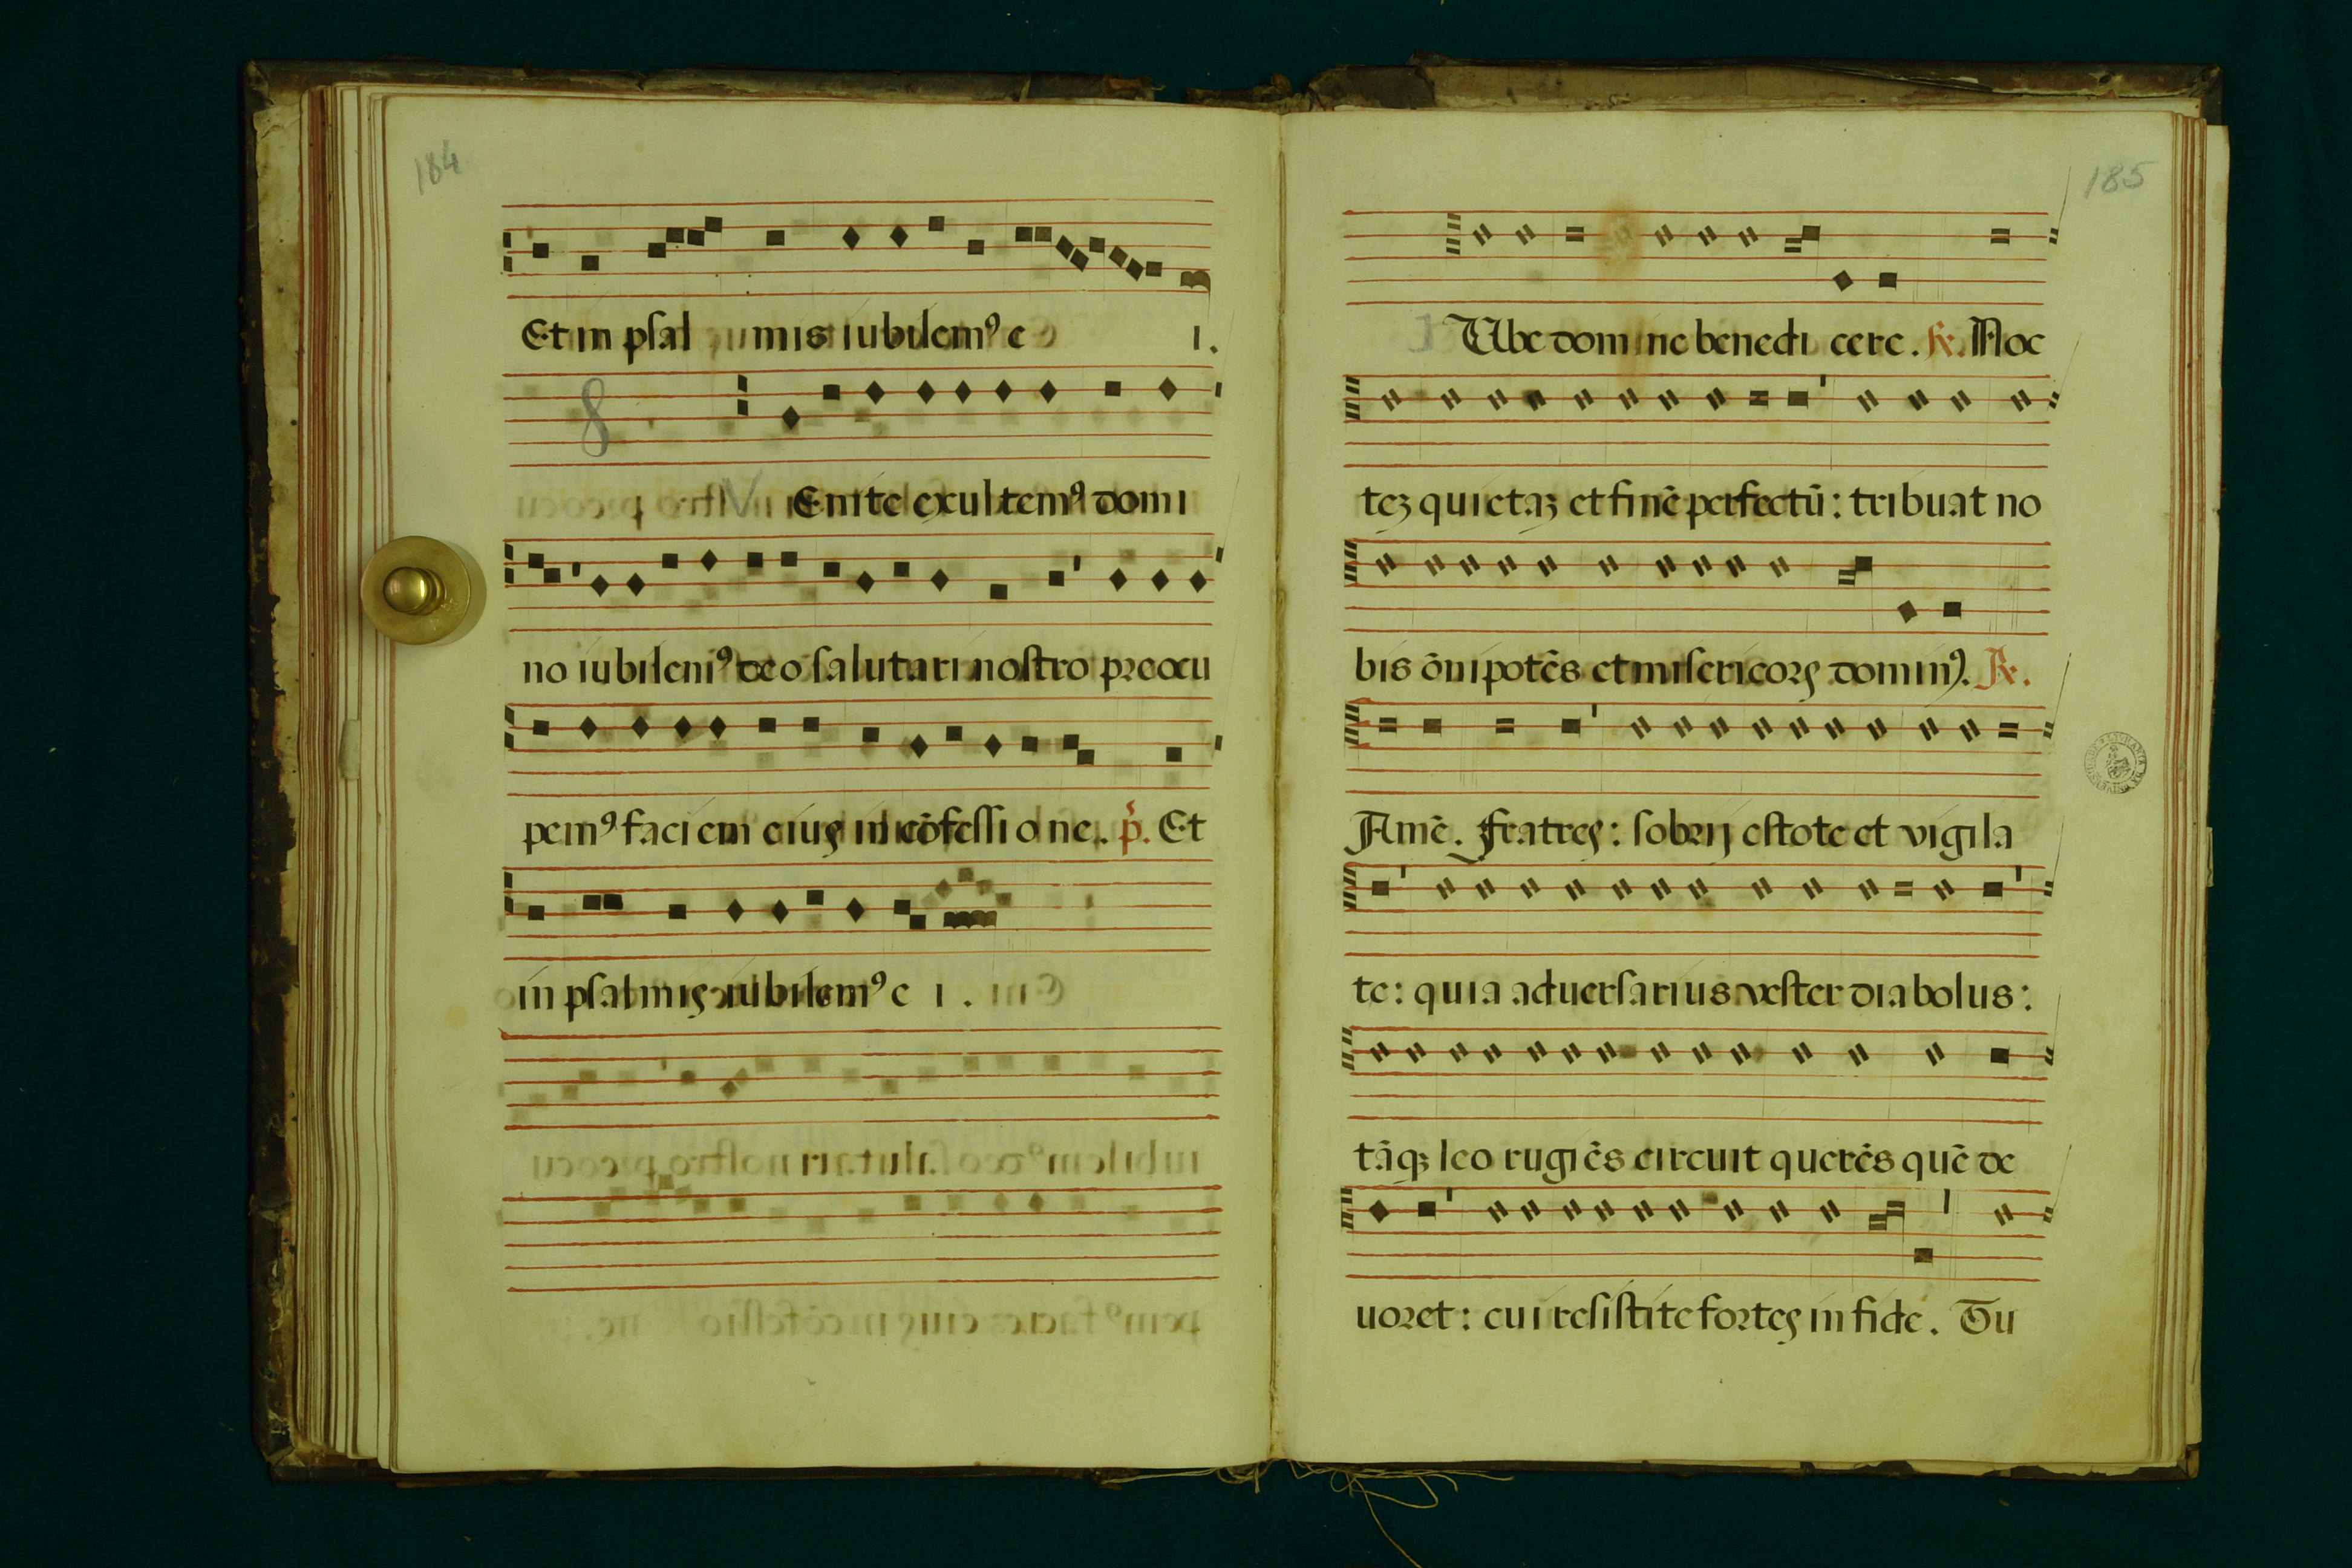 184
Et in psal mis iubilemꝰ e i.
8
V Enite exultemꝰ domi
no iubilemꝰ deo salutari nostro preocu
pemꝰ faciem eius in cōfessi o ne. p̄. Et
in psalmis iubilemꝰ e i.
185
I Ube domine benedi cere. ℟. Noc
teꝫ quietaꝫ et finē perfectū: tribuat no
bis ōnipotēs et misericors dominꝰ. ℟.
Amē. Fratres: sobrij estote et vigila
te: quia aduersarius vester diabolus:
tāqꝫ leo rugiēs circuit querēs quē de
uoret: cui resistite fortes in fide. Tu